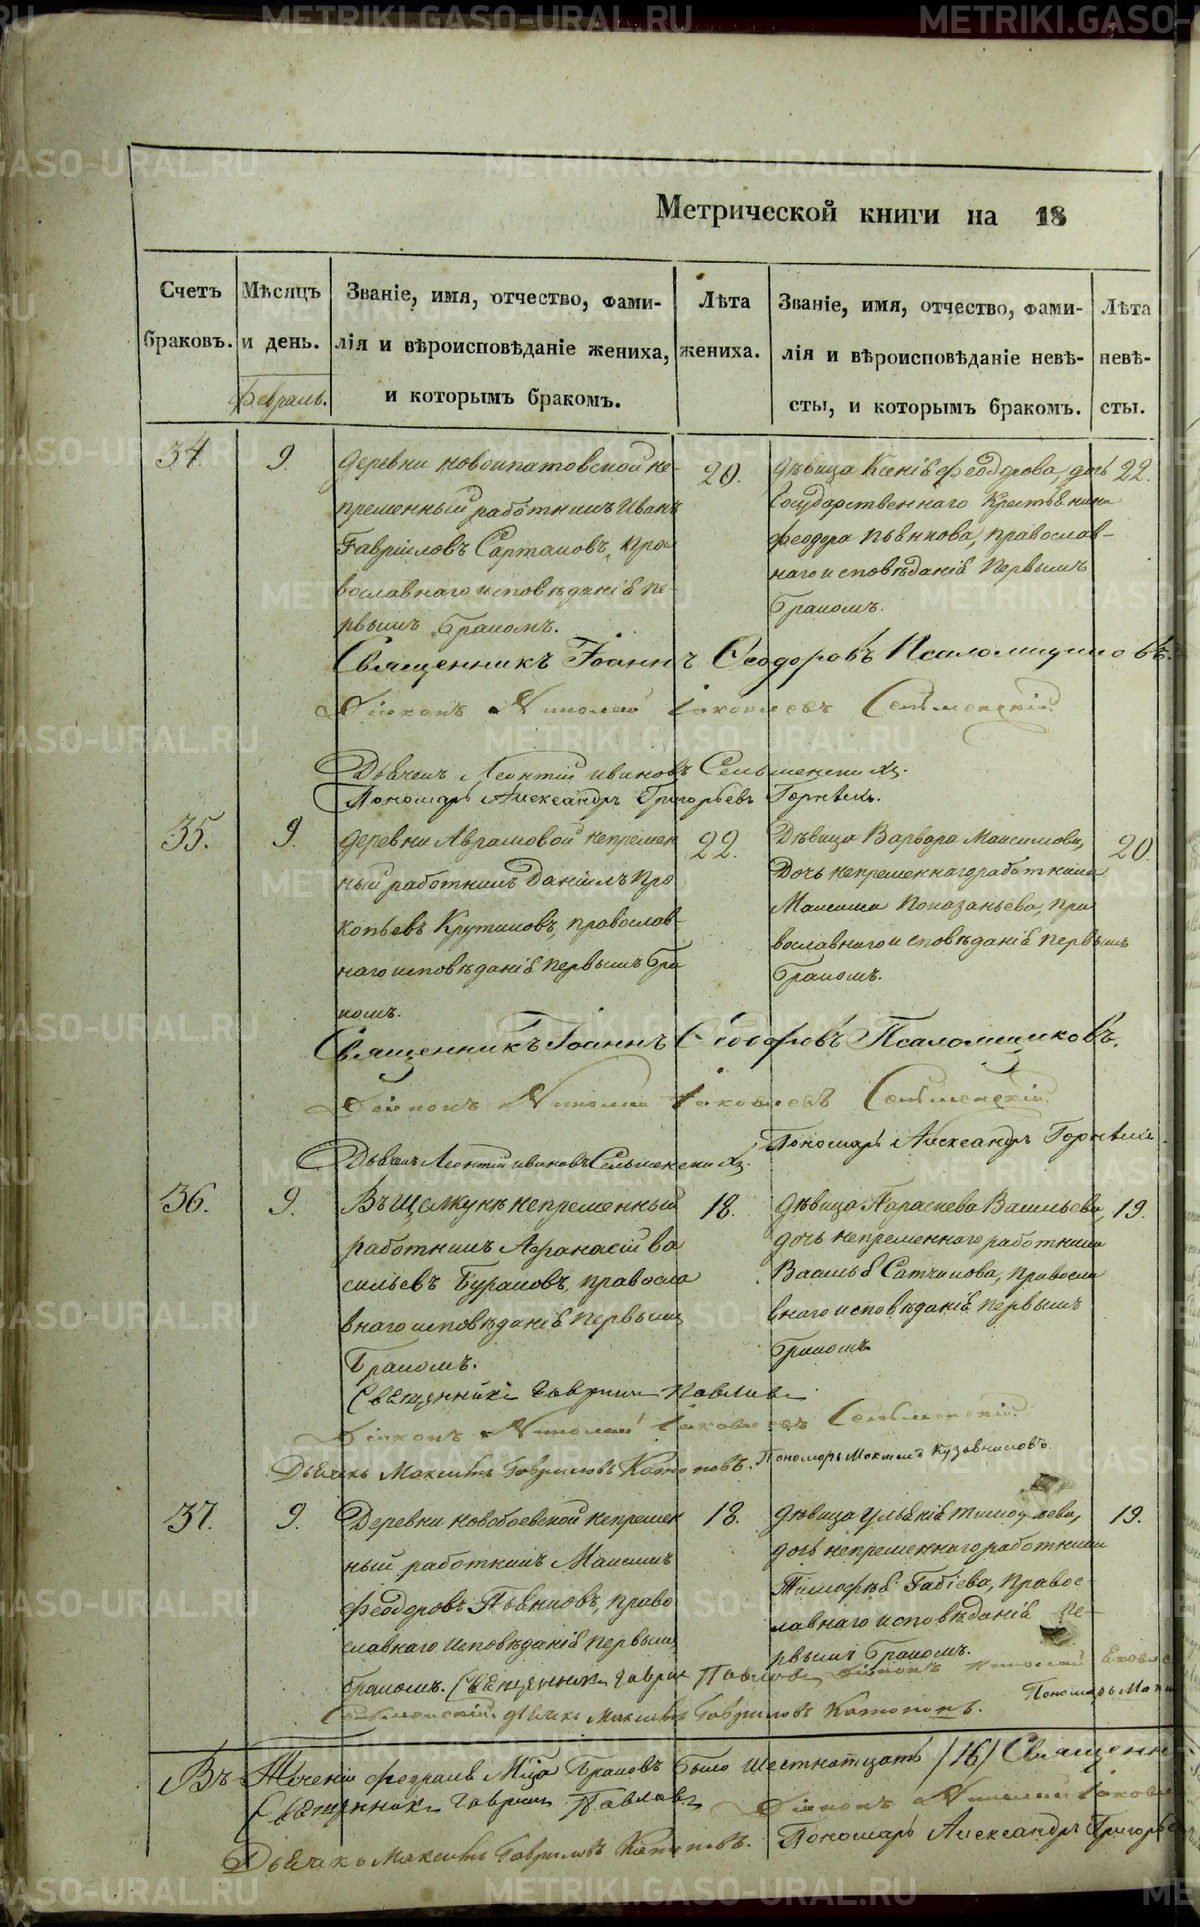 Метрической книги на 18
Счетъ браковъ.
Мѣсяцъ и день.
Званіе, имя, отчество, фами-
лія и вѣроисповѣданіе жениха,
и которымъ бракомъ.
Лѣта жениха.
Званіе, имя, отчество, фами-
лія и вѣроисповѣданіе невѣ-
сты, и которымъ бракомъ.
Лѣта невѣ-
сты.
Февраль.
34.
9.
Деревни Новоипатовской не-
пременный работникъ Иванъ
Гавриловъ Сартаковъ, пра
вославнаго исповѣданія пе-
рвымъ бракомъ.
20.
Дѣвица Ксенія Феодорова, дочь
Государственнаго Крестьянина
Феодора Пьянкова, православ-
наго исповѣданія первымъ
бракомъ.
22.
Священникъ Іоаннъ Феодоровъ Псаломщиковъ.
Діаконъ Николай Іаковлевъ
Дьячекъ Леонтій Ивановъ
Пономарь Александръ Григорьевъ
35.
9.
Деревни Аврамовой непремен
ный работникъ Даніилъ Про
копьевъ Крутиковъ, православ-
наго исповѣданія первымъ бра
комъ.
22.
Дѣвица Варвара Максимова,
Дочь непременнаго работника
Максима Показаньева, пра
вославнаго исповѣданія первымъ
бракомъ.
20.
Священникъ Іоаннъ Феодоровъ Псаломщиковъ.
Діаконъ Николай Іаковлевъ
Пономарь Александръ
Дьячекъ Леонтій Ивановъ
36.
9.
Въ Щелкунѣ непременный
работникъ Афанасій Ва
сильевъ Бураковъ, правосла
внаго исповѣданія первымъ
бракомъ.
18.
Дѣвица Параскева Васильева,
дочь непременнаго работника
Василья Сатчикова, правосла
внаго исповѣданія первымъ
бракомъ
19.
Священникъ Гаврилъ Павловъ
Діаконъ Николай Іаковлевъ
Дьячекъ Максимъ Гавриловъ Катоповъ. Пономарь Максимъ Кузовниковъ.
37.
9.
Деревни Новобоевской непремен
ный работникъ Максимъ
Феодоровъ Пьянковъ, право
славнаго исповѣданія первымъ
бракомъ. Священникъ Гаврилъ Павловъ Діаконъ Николай
18.
Дѣвица Ульянія Тимофеева,
дочь непременнаго работника
Тимофѣя Бабіева, правос-
лавнаго исповѣданія пе-
рвымъ бракомъ.
19.
Дьячекъ Максимъ Гавриловъ Катоповъ.
Пономарь Мак
Въ Теченіи февраля М-ца Браковъ было Шестнатцать /16/ Священн
Священникъ Гаврилъ Павловъ Діаконъ Николай Іаковл
Дьячекъ Максимъ Гавриловъ Катоповъ. Пономарь Александръ Григорье
METRIKI.GASO-URAL.RU